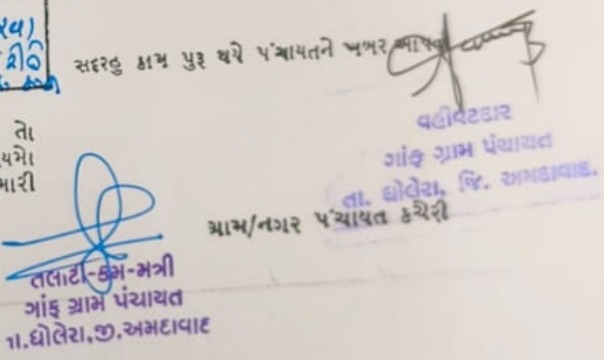 સદરહુ કામ પુરૂ થયે પંચાયતને ખબર આપવી
તો
મારી
વહીવટદાર
ગાંફ ગ્રામ પંચાયત
તા. ધોલેરા, જિ. અમદાવાદ.
ગ્રામ/નગર પંચાયત કચેરી
તલાટી-કમ-મંત્રી
ગાંફ ગ્રામ પંચાયત
તા.ધોલેરા,જી.અમદાવાદ